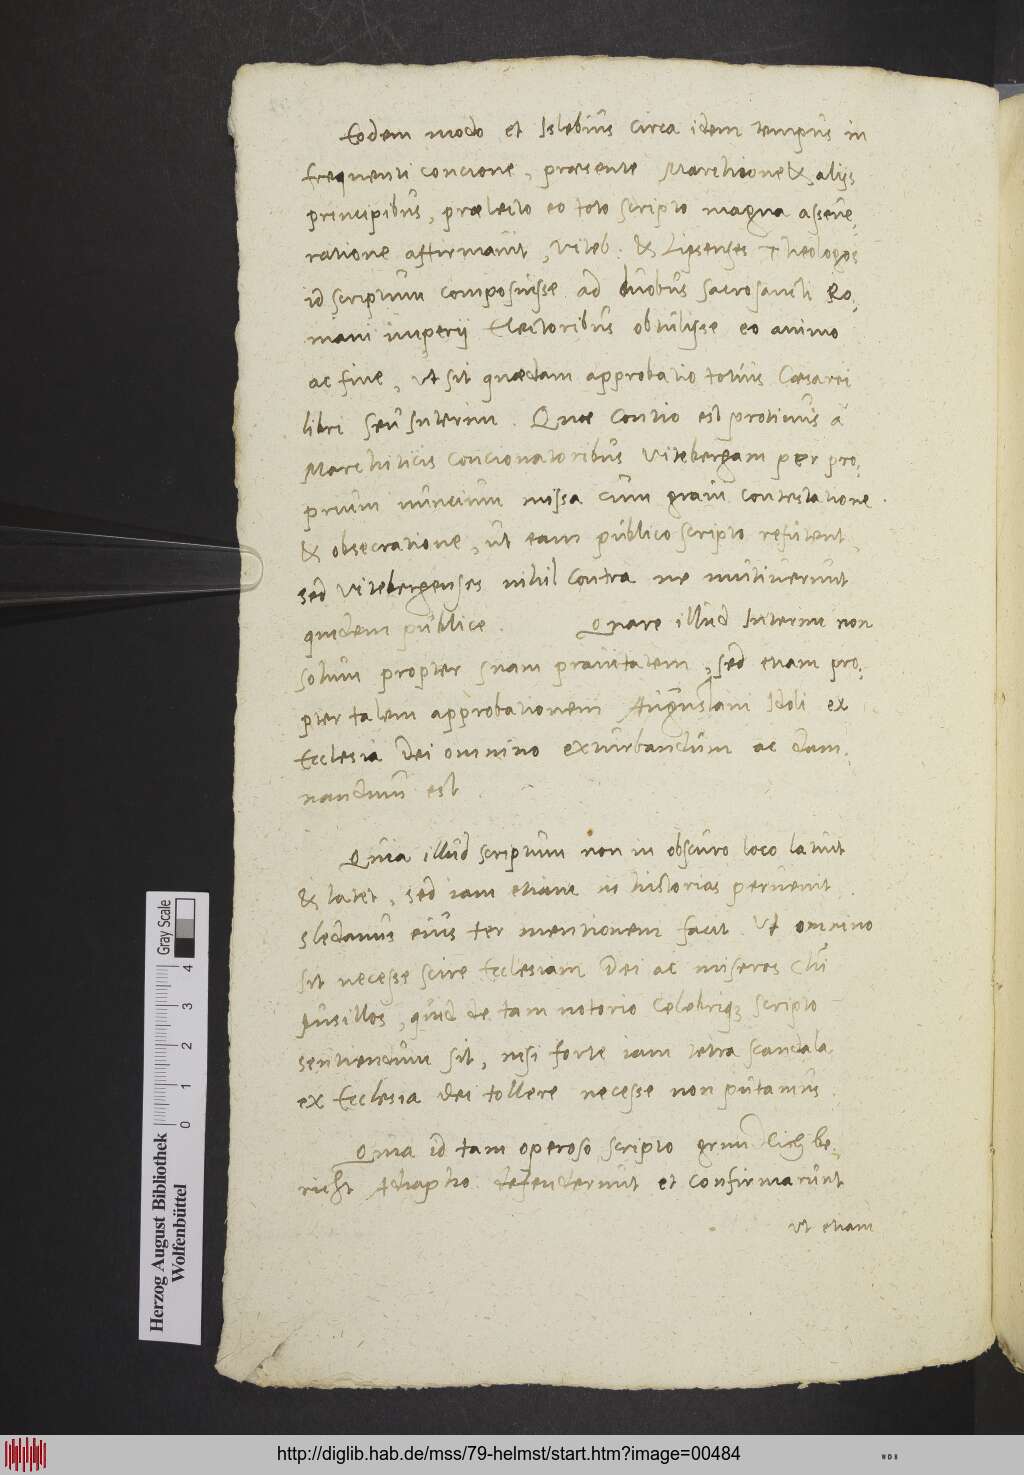 Eodem modo et Islebius circa idem tempus in
frequenti concione, praesente Marchione & alijs
principibus, praelecto eo toto scripto magna asseve,,
ratione affirmavit, Viteb. & Lipsenses Theologos
id scriptum composuisse ad duobus sacrosancti Ro,,
mani imperij Electoribus obtulisse eo animo
ac fine, ut sit quaedam approbatio totius Caesarei
libri seu Interim. Quae contio est protinus à
Marchiticis concionatoribus Vitebergam per pro,,
prium nuncium missa cum gravi contestatione
& obsecratione, ut eam publico scripto refutent,
sed Vitebergenses nihil contra ne mutiverunt
quidem publice. Quare illud Interim non
solum propter suam pravitatem, sed etiam pro,,
pter talem approbationem Augustani Idoli ex
Ecclesia Dei omnino exturbandum ac dam,,
nandum est.
Quia illud scriptum non in obscuro loco latuit
& latet, sed iam etiam in historias pervenit
Sledanus eius ter mentionem facit. Ut omnino
sit necesse scire Ecclesiam Dei ac miseros Chri
pusillos, quid de tam notorio celebriq; scripto
sentiendum sit, nisi forte iam tetra scandala
ex Ecclesia Dei tollere necesse non putamus.
Quia id tam operoso scripto grundlich be,,
richt Adiaphio. defenderunt et confirmarunt
ut etiam
Gray Scale
0 1 2 3 4
Herzog August Bibliothek
Wolfenbüttel
http://diglib.hab.de/mss/79-helmst/start.htm?image=00484
WDB